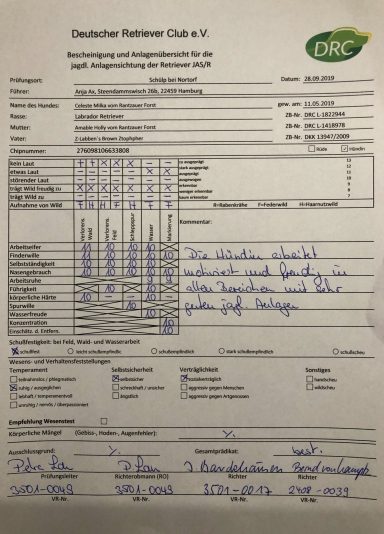 Deutscher Retriever Club e.V.
DRC
Bescheinigung und Anlagenübersicht für die
jagdl. Anlagensichtung der Retriever JAS/R
Prüfungsort: Schülp bei Nortorf Datum: 28.09.2019
Führer: Anja Ax, Streendammswisch 26b, 22459 Hamburg
Name des Hundes: Celeste Milka vom Rantzauer Forst gew. am: 11.05.2019
Rasse: Labrador Retriever ZB-Nr. DRC L-1822944
Mutter: Amabile Holly vom Rantzauer Forst ZB-Nr. DRC L-1418978
Vater: Z-Labben's Brown Ztophpher ZB-Nr. DKK 13947/2009
Chipnummer: 276098106633808 Rüde Hündin
kein Laut + + X X X - - zu ausgeprägt 12
etwas Laut - - - - - X X stark ausgeprägt 11
störender Laut - - - - - - - ausgeprägt 10
trägt Wild freudig zu X X X X X X X erkennbar 9
trägt Wild zu - - - - - - - weniger erkennbar
Aufnahme von Wild F H F H H F F R=Rabenkrähe F=Federwild H=Haarnutzwild
Verlorens. Wald Verlorens. Feld Schleppspur Wasser Markierung Kommentar:
Arbeitseifer 11 10 10 10 10
Finderwille 11 10 10 10 10 Die Hündin arbeitet
Selbstständigkeit 10 10 10 10 10 motiviert und freudig in
Nasengebrauch 10 10 10 10 10 allen Bereichen mit sehr
Arbeitsruhe 9 9 guten jagl. Anlagen
Führigkeit 10
körperliche Härte 10 - - 10 -
Spurwille 10
Wasserfreude 10
Konzentration 10
Einschätz. d. Entfern. 10
Schußfestigkeit: bei Feld, Wald- und Wasserarbeit
schußfest leicht schußempfindlich schußempfindlich stark schußempfindlich schußscheu
Wesens- und Verhaltensfeststellungen
Temperament Selbstsicherheit Verträglichkeit Sonstiges
teilnahmslos / phlegmatisch selbstsicher sozialverträglich handscheu
ruhig / ausgeglichen schreckhaft / unsicher aggressiv gegen Menschen wildscheu
lebhaft / temperamentvoll ängstlich aggressiv gegen Artgenossen
unruhig / nervös / überpassioniert
Empfehlung Wesenstest
Körperliche Mängel (Gebiss-, Hoden-, Augenfehler): ./.
Ausschlussgrund: ./. Gesamtprädikat: best.
Prüfungsleiter Richterobmann (RO) Richter Richter
3501-0049 3501-0049 3501-0017 2408-0039
VR-Nr. VR-Nr. VR-Nr. VR-Nr.